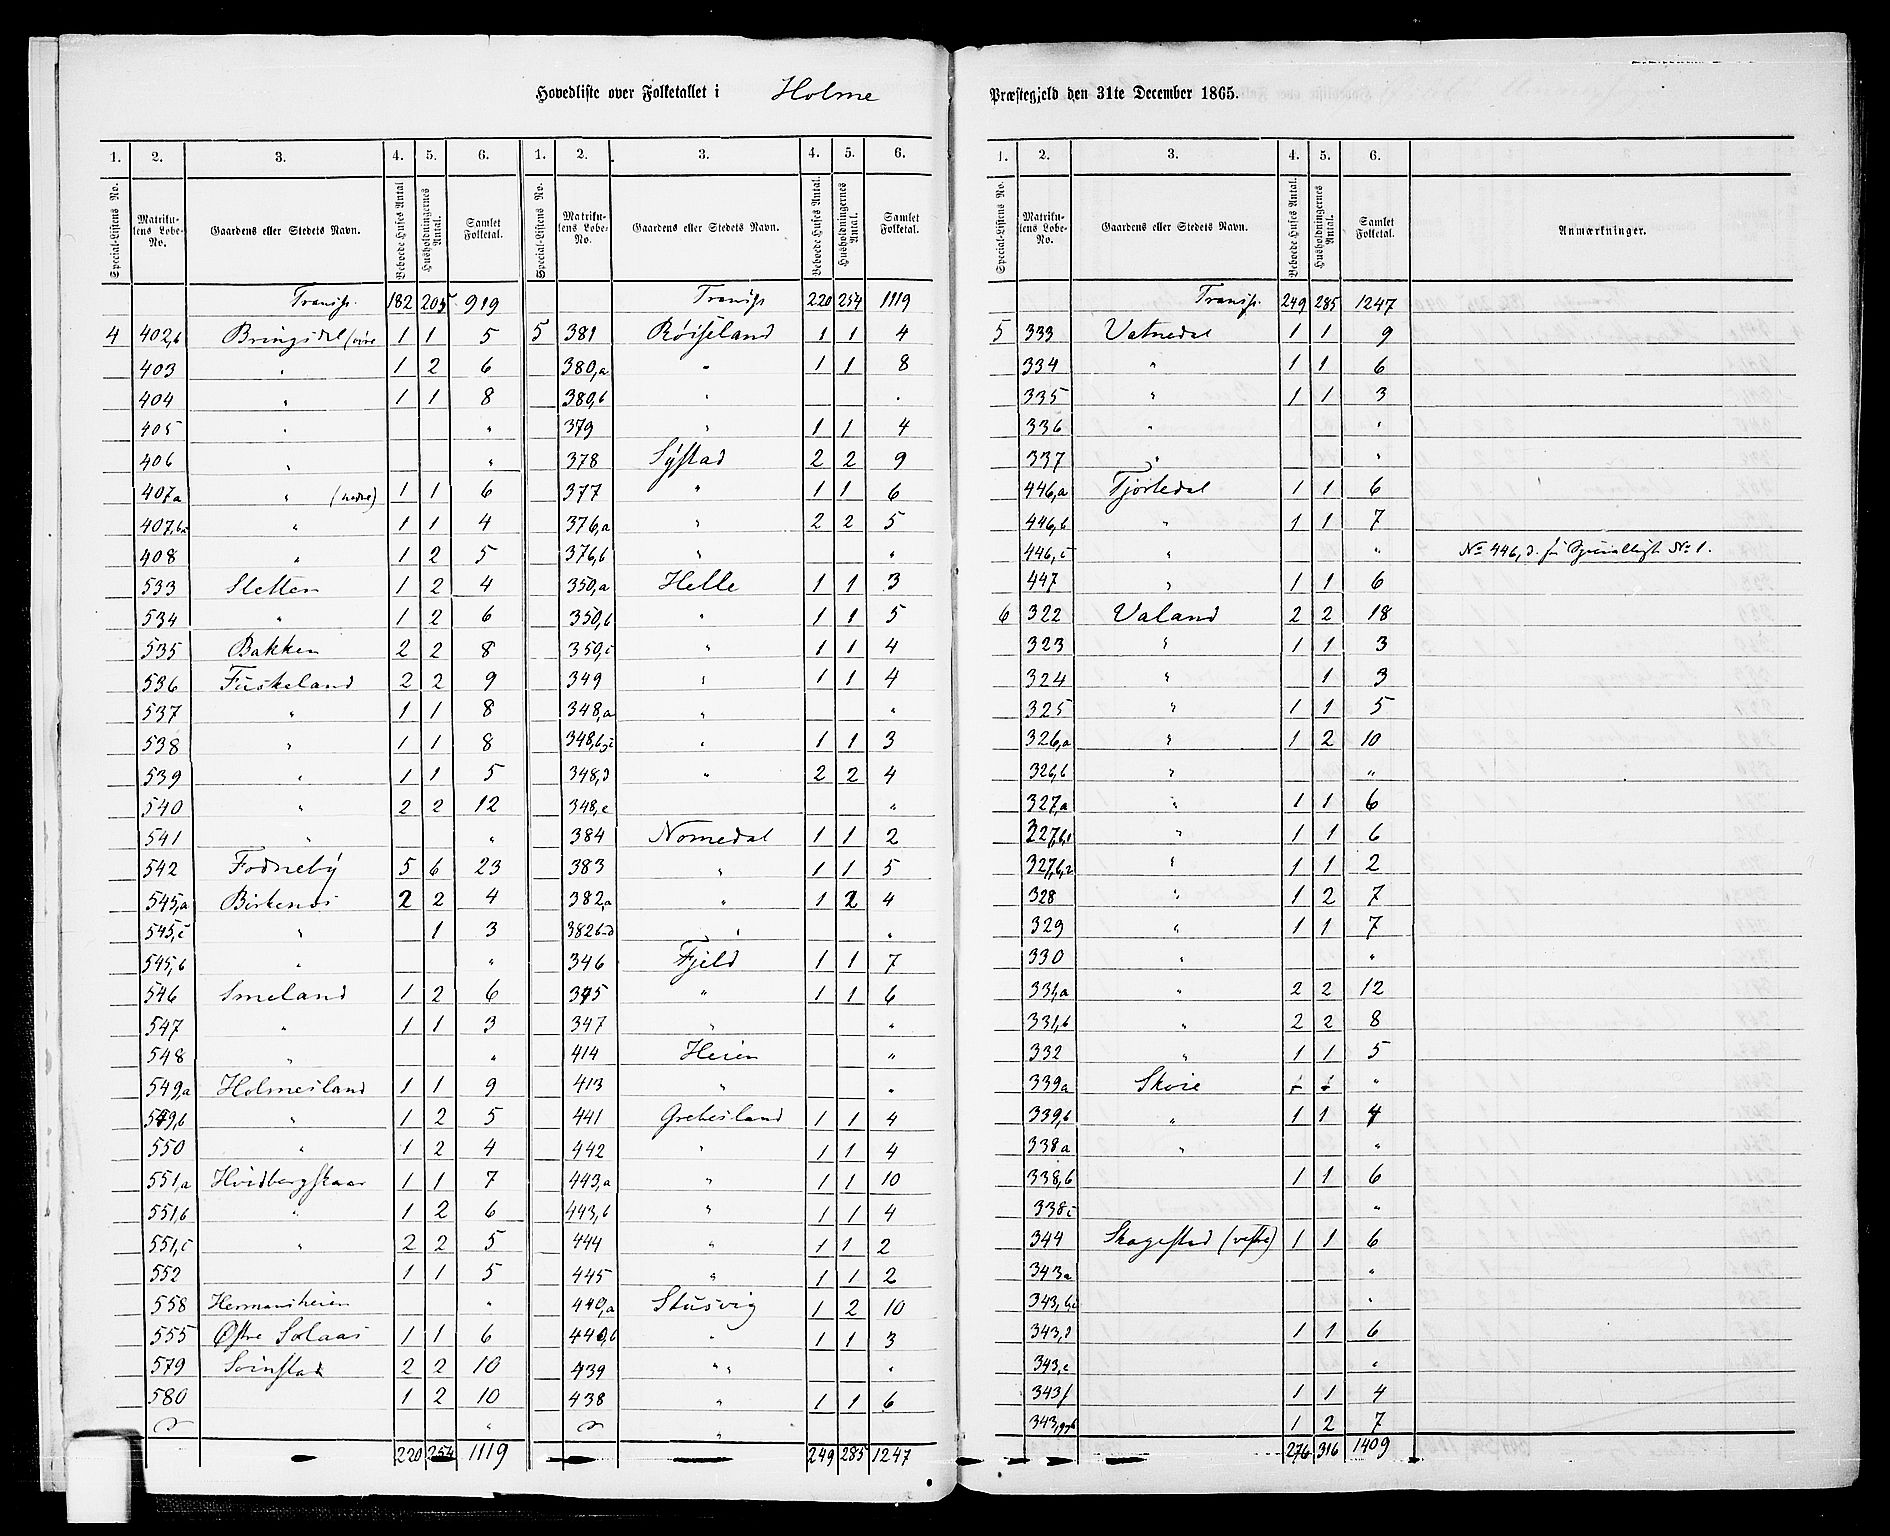 Hovedliste over Folketallet i Holme Præstegjeld den 31te December 1865.
1. 2. 3. 4. 5. 6.
Special-Listens No. Matrikulens Løbe-No. Gaardens eller Stedets Navn. Beboede Huses Antal Husholdningernes Antal. Samlet Folketal.
Transp. 182 205 919
4 402,b Bringsdal (øvre 1 1 5
403 " 1 2 6
404 " 1 1 8
405 " "
406 " "
407a " (nedre) 1 1 6
407,b,c " 1 1 4
408 " 1 2 5
533 Sletten 1 2 4
534 " 1 2 6
535 Bakken 2 2 8
536 Fuskeland 2 2 9
537 " 1 1 8
538 " 1 1 8
539 " 1 1 5
540 " 2 2 12
541 " "
542 Fodneby 5 6 23
545,a Birkenæs 2 2 4
545,c " 1 3
545,b " "
546 Smeland 1 2 6
547 " 1 1 3
548 " "
549,a Holmesland 1 1 9
549,b " 1 2 5
550 " 1 2 4
551,a Hvidbergskaar 1 1 7
551,b " 1 2 6
551,c " 2 2 5
552 1 1 5
558 Hermansheien "
555 Østre Solaas 1 1 6
579 Svinstad 2 2 10
580 1 2 10
"
220 254 1119
1. 2. 3. 4. 5. 6.
Special-Listens No. Matrikulens Løbe-No. Gaardens eller Stedets Navn. Beboede Huses Antal. Husholdningernes Antal. Samlet Folketal.
Transp 220 254 1119
5 381 Røiseland 1 1 4
380,a " 1 1 8
380,b " "
379 " 1 1 4
378 Systad 2 2 9
377 " 1 1 6
376,a " 2 2 5
376,b " "
350,a Helle 1 1 3
350,b " 1 1 5
350,c " 1 1 4
349 " 1 1 4
348,a " "
348,b,c " 1 1 3
348,d " 2 2 4
348,e "
384 Nomedal 1 1 2
383 " 1 1 5
382,a " 1 2 4
382b-d " "
346 Fjeld 1 1 7
345 " 1 1 6
347 " "
414 Heien "
413 " "
441 Grebesland 1 1 4
442 " 1 1 4
443,a " 1 1 10
443,b " 1 1 4
444 " 1 1 2
445 " 1 1 2
440,a Stusvig 1 2 10
440,b " 1 1 3
439 " " "
438 " 1 1 6
"
249 285 1247
1. 2. 3. 4. 5. 6.
Special-Listens No. Matrikulens Løbe-No. Gaardens eller Stedets Navn. Beboede Huses Antal. Husholdningernes Antal. Samlet Folketal. Anmærkninger.
Transp. 249 285 1247
5 333 Vatnedal 1 1 9
334 " 1 1 6
335 " 1 1 3
336 " "
337 " "
446,a Tjørtedal 1 1 6
446,b " 1 1 7
446,c " " No 446,d. se Specialliste No 1.
447 " 1 1 6
6 322 Valand 2 2 18
323 " 1 1 3
324 " 1 3
325 " 1 1 5
326,a " 1 2 10
326,b " "
327,a " 1 1 6
327,b,1 " 1 1 6
327,b,2 " 1 1 2
328 " 1 2 7
329 " 1 1 7
330 " "
331,a " 2 2 12
331,b " 2 2 8
332 " 1 1 5
339a Skoie "
339,b " 1 1 4
338a " "
338,b 1 1 6
338c "
344 Skogestad (vestre) 1 1 6
343a "
343,b,c "
343,d 1 1 6
343,e "
343f 1 1 4
343,g 1 2 7
276 316 1409